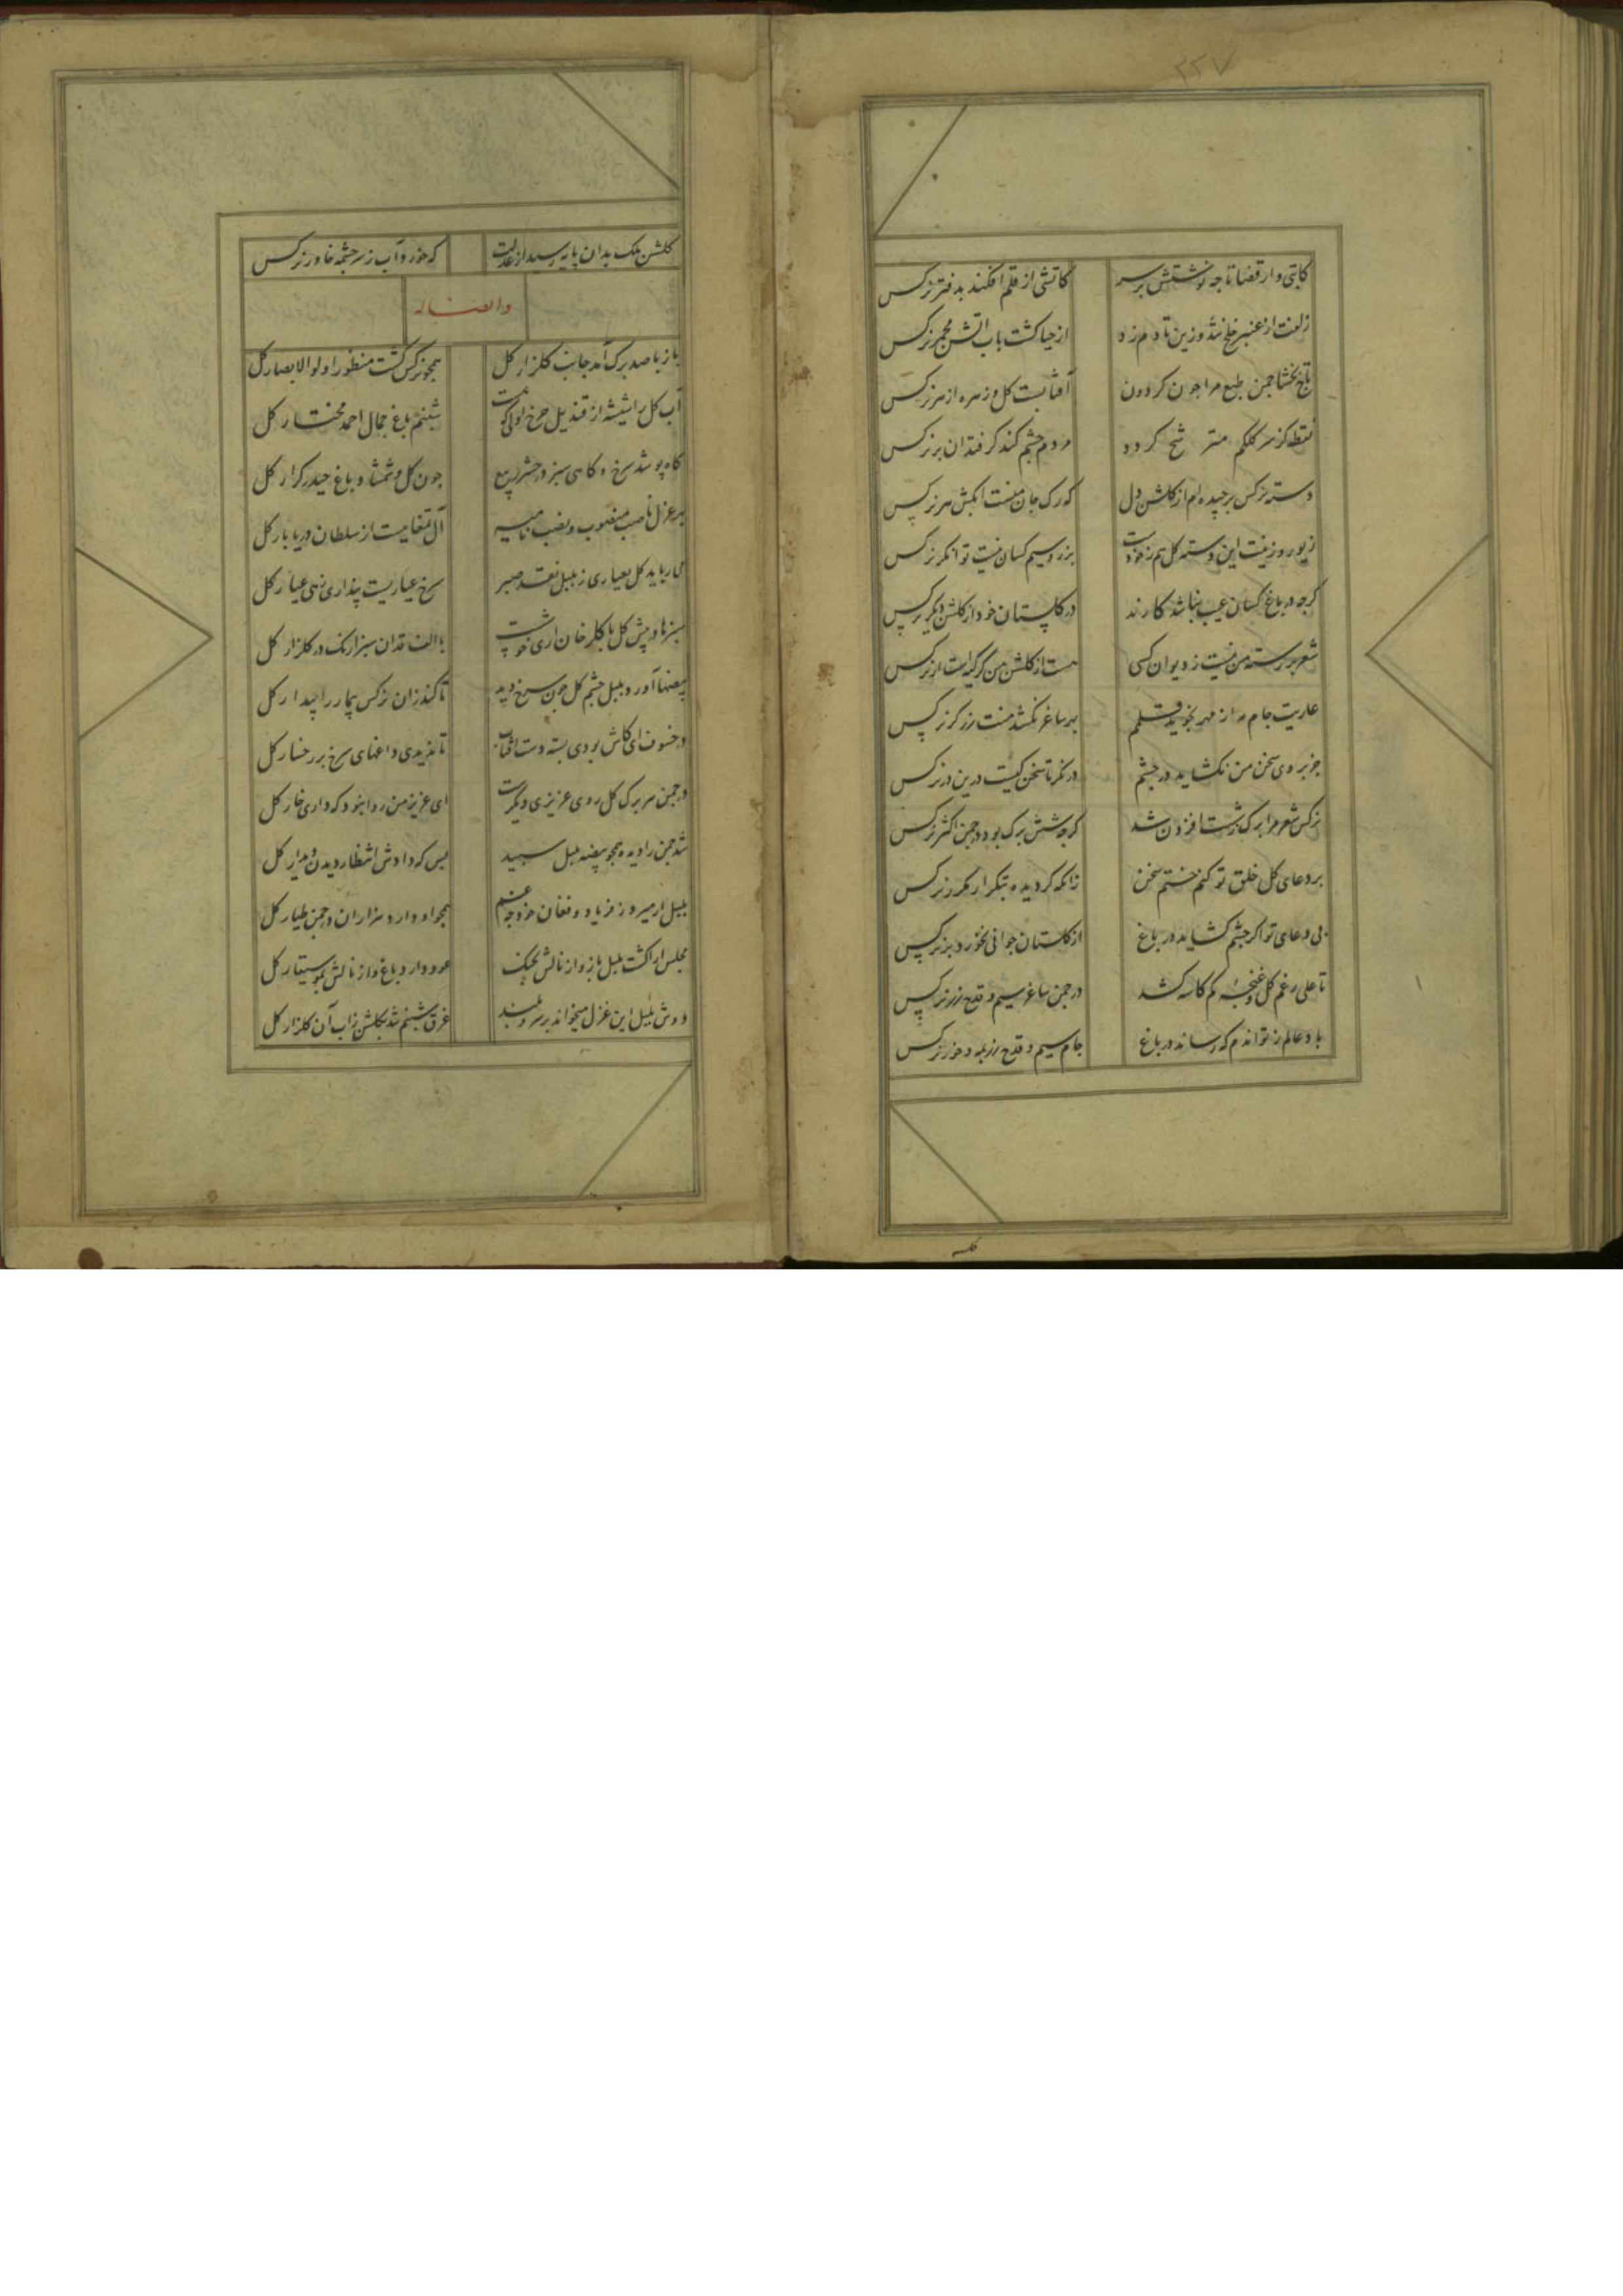 ۲۲۷
کاتبی وار قضا تا چه نوشتش بر سر کاتشی از قلم افکند بدفتر نرکس
زلفت از عنبر خلخ شد وزین تا دم زد از حیا کشت باب آتش مجمر نرکس
باغ بخشا چمن طبع مرا چون کردون آفتابست کل و زهره ازهر نرکس
نقطه کز سر کلکم مترشح کردد مردم چشم کند کر فتد آن بر نرکس
دسته نرکس برچیده‌ام از کلشن دل که رک جان منست آنکش هر نرکس
زیور و زینت این دسته کل هم ز خودست بزر و سیم کسان نیست توانکر نرکس
کرچه در باغ کسان عیب نباشد کارند در کلستان خود از کلشن دیکر نرکس
شعر بر رسته من نیست ز دیوان کسی هست از کلشن من کر کل است ار نرکس
عاریت جام مه از مهر نجوید قلمم بهر ساغر نکشد منت زرکر نرکس
جز بروی سخن من نکشاید در چشم در نکر تا سخن کیست درین در نرکس
نرکس شعر مرا برک ز شست افزون شد کرچه شش برک بود در چمن اکثر نرکس
بر دعای کل خلق تو کنم ختم سخن زانکه کردیده بتکرار مکرر نرکس
بی دعای تو اکر چشم کشاید در باغ از کلستان جوانی نخورد بر نرکس
تا علی رغم کل و غنچه کم کاسه کشد در چمن ساغر سیم و قدح زر نرکس
باد عالم ز تو اندم که رساند در باغ جام سیم و قدح زر بمه و خور نرکس
کلشن ملک بدان پایه رسید از عدلت که خورد آب ز سرچشمه خاور نرکس
و ایضا له
باز با صد برک آمد جانب کلزار کل همچو نرکس کشت منظور اولو الابصار کل
آب کل را شیشه از قندیل چرخ اولی که هست شبنم باغ جمال احمد مختار کل
کاه پوشد سرخ و کاهی سبز در حشر ربیع چون کل و شمشاد باغ حیدر کرار کل
بهر عزل ناصب منصوب و نصب نامیه آل تمغاییست از سلطان دریا بار کل
می‌رباید کل بعیاری ز بلبل نقد صبر سرخ عیاریست پنداری زهی عیار کل
سبزها در پیش کل با کلرخان آری خوشست با الف قدان سبزارنک در کلزار کل
بیضها آورد بلبل چشم کل چون سرخ دید تا کند زان نرکس بیمار را چیدار کل
در خسوف ای کاش بودی بسته دست آفتاب تا ندیدی داغهای سرخ بر رخسار کل
در چمن هر برک کل روی عزیزی دیکرست ای عزیز من روا نبود که داری خار کل
شد چمن را دیده همچو بیضه بلبل سپید بس که دادش انتظار دیدن دیدار کل
بلبل ار میرد ز فریاد و فغان خود چه غم همچو او دارد هزاران در چمن طیار کل
مجلس آرا کشت بلبل باز و از نالش بچنک عود دارد باغ و از نالش بموسیقار کل
دوش بلبل این غزل میخواند بر سرو بلند غرق شبنم شد بکلشن زاب آن کلزار کل